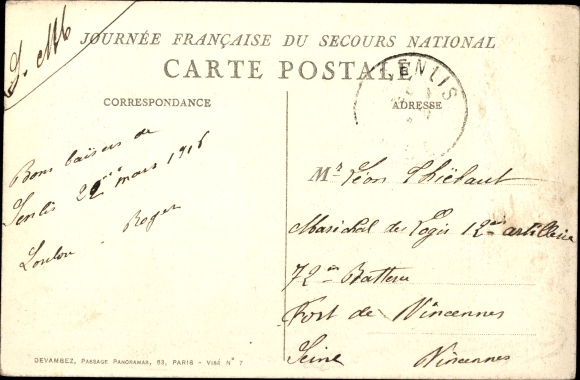 F. M
JOURNÉE FRANÇAISE DU SECOURS NATIONAL
CARTE POSTALE
SENLIS
CORRESPONDANCE
ADRESSE
Bons baisers de
Senlis 22 mars 1916
Loulou - Roger
Mr Léon Thiébaut
Maréchal des Logis 12e artillerie
72e Batterie
Fort de Vincennes
Seine Vincennes
DEVAMBEZ, PASSAGE PANORAMAS, 63, PARIS - VISÉ N° 7